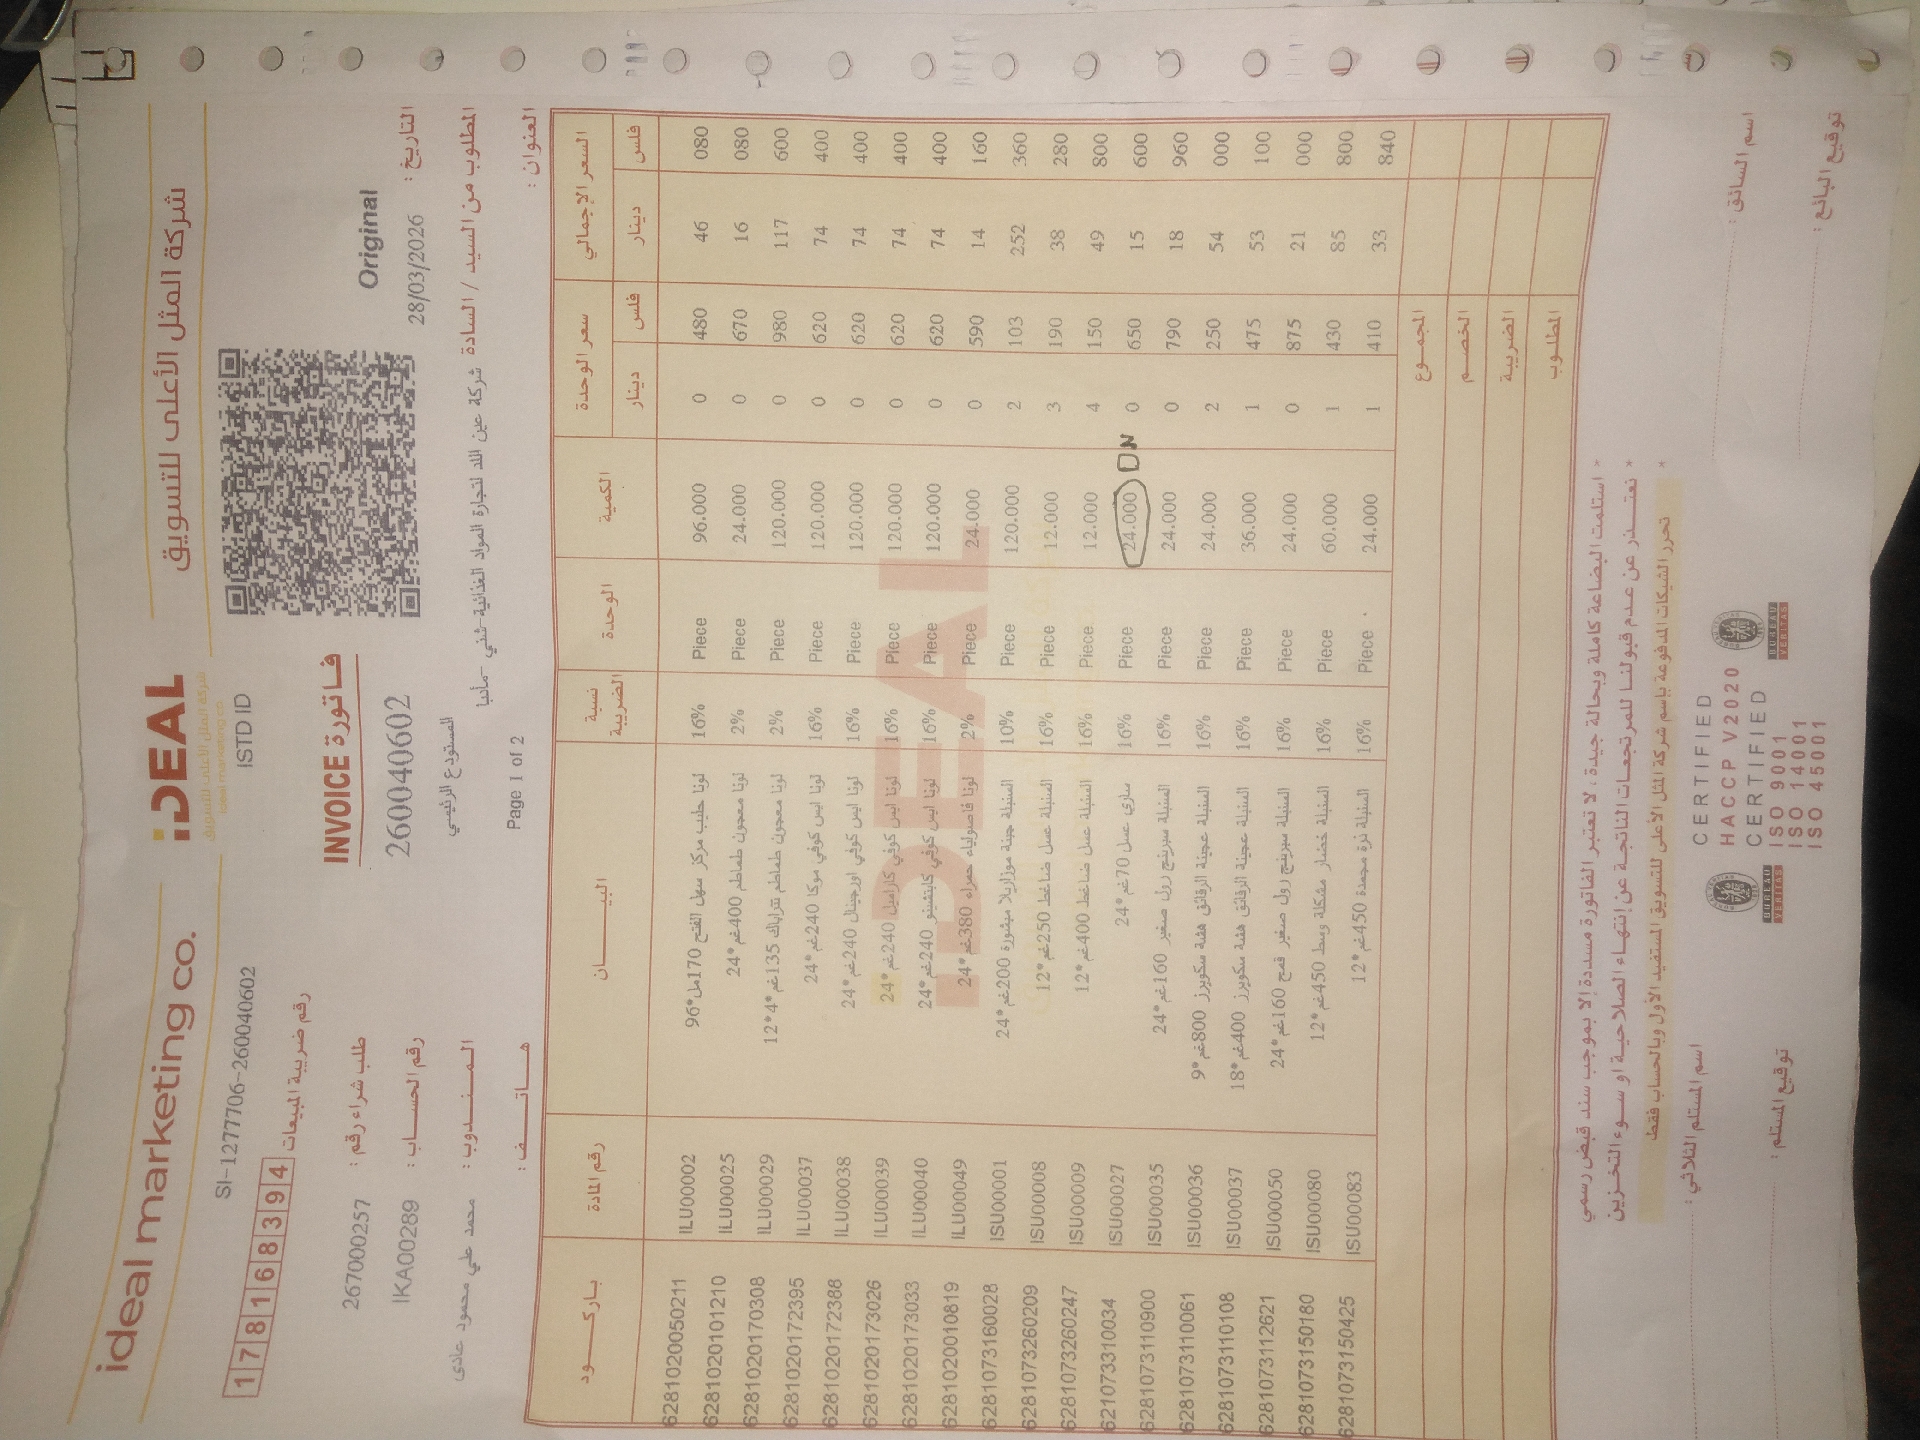 ideal marketing co.
iDEAL
شركة المثل الأعلى للتسويق
شركة المثل الأعلى للتسويق
ideal marketing co
SI-1277706-260040602
ISTD ID
1 7 8 1 6 8 3 9 4 رقم ضريبة المبيعات
INVOICE فاتورة
Original
طلب شراء رقم : 267000257
260040602
التاريخ : 28/03/2026
رقم الحساب : IKA00289
المستودع الرئيسي
المطلوب من السيد / السادة شركة عين اللد لتجارة المواد الغذائية-شني -مأدبا
المندوب : محمد علي محمود عادى
Page 1 of 2
العنوان :
هاتف :
باركود رقم المادة البيان نسبة الضريبة الوحدة الكمية سعر الوحدة السعر الإجمالي
دينار فلس دينار فلس
6281020050211 ILU00002 لونا حليب مركز سهل الفتح 170مل*96 16% Piece 96.000 0 480 46 080
6281020101210 ILU00025 لونا معجون طماطم 400غم*24 2% Piece 24.000 0 670 16 080
6281020170308 ILU00029 لونا معجون طماطم تتراباك 135غم*4*12 2% Piece 120.000 0 980 117 600
6281020172395 ILU00037 لونا ايس كوفي موكا 240غم*24 16% Piece 120.000 0 620 74 400
6281020172388 ILU00038 لونا ايس كوفي اورجينال 240غم*24 16% Piece 120.000 0 620 74 400
6281020173026 ILU00039 لونا ايس كوفي كاراميل 240غم*24 16% Piece 120.000 0 620 74 400
6281020173033 ILU00040 لونا ايس كوفي كابتشينو 240غم*24 16% Piece 120.000 0 620 74 400
6281020010819 ILU00049 لونا فاصولياء حمراء 380غم*24 2% Piece 24.000 0 590 14 160
6281073160028 ISU00001 السنبلة جبنة موزاريلا مبشورة 200غم*24 10% Piece 120.000 2 103 252 360
6281073260209 ISU00008 السنبلة عسل ضاغط 250غم*12 16% Piece 12.000 3 190 38 280
6281073260247 ISU00009 السنبلة عسل ضاغط 400غم*12 16% Piece 12.000 4 150 49 800
621073310034 ISU00027 عسل 70غم*24 16% Piece 24.000 ON 0 650 15 600
6281073110900 ISU00035 السنبلة سبرينج رول صغير 160غم*24 16% Piece 24.000 0 790 18 960
6281073110061 ISU00036 السنبلة عجينة الرقائق هشة سكويرز 800غم*9 16% Piece 24.000 2 250 54 000
6281073110108 ISU00037 السنبلة عجينة الرقائق هشة سكويرز 400غم*18 16% Piece 36.000 1 475 53 100
6281073112621 ISU00050 السنبلة سبرينج رول صغير قمح 160غم*24 16% Piece 24.000 0 875 21 000
6281073150180 ISU00080 السنبلة خضار مشكلة وسط 450غم*12 16% Piece 60.000 1 430 85 800
6281073150425 ISU00083 السنبلة ذرة مجمدة 450غم*12 16% Piece 24.000 1 410 33 840
iDEAL
المجموع
الخصم
الضريبة
المطلوب
* استلمت البضاعة كاملة وبحالة جيدة : لا تعتبر الفاتورة مسددة إلا بموجب سند قبض رسمي
* نعتذر عن عدم قبولنا للمرتجعات الناتجة عن إنتهاء الصلاحية او سوء التخزين
* تحرر الشيكات المدفوعة بإسم شركة المثل الأعلى للتسويق المستفيد الأول وبالحساب فقط
اسم المستلم الثلاثي :
اسم السائق :
توقيع المستلم :
توقيع البائع :
BUREAU VERITAS
CERTIFIED
HACCP V2020
CERTIFIED
ISO 9001
ISO 14001
ISO 45001
BUREAU VERITAS